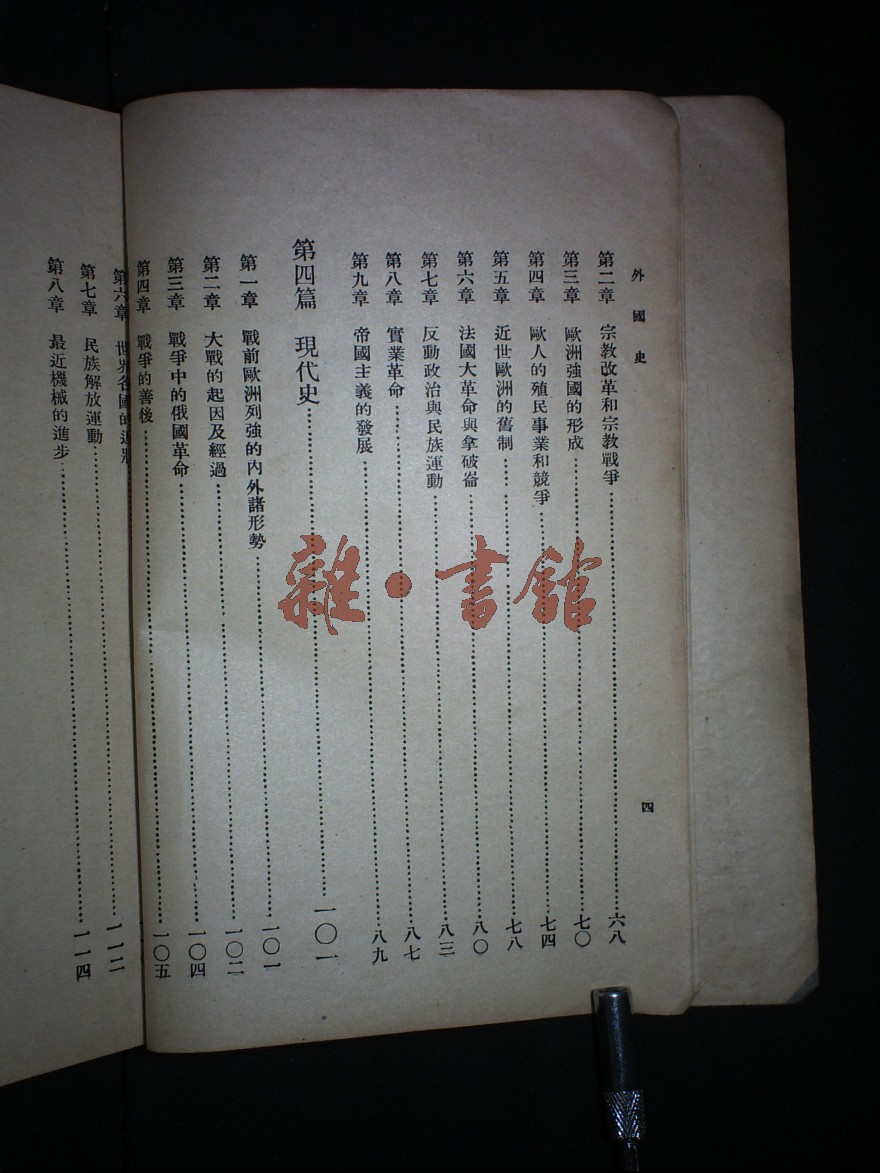 外國史
四
第二章 宗教改革和宗教戰爭……六八
第三章 歐洲強國的形成……七〇
第四章 歐人的殖民事業和競爭……七四
第五章 近世歐洲的舊制……七八
第六章 法國大革命與拿破崙……八〇
第七章 反動政治與民族運動……八三
第八章 實業革命……八七
第九章 帝國主義的發展……八九
第四篇 現代史……一〇一
第一章 戰前歐洲列強的內外諸形勢……一〇一
第二章 大戰的起因及經過……一〇二
第三章 戰爭中的俄國革命……一〇四
第四章 戰爭的善後……一〇五
第六章 世界各國的近狀
第七章 民族解放運動……一一二
第八章 最近機械的進步……一一四
雜·書館